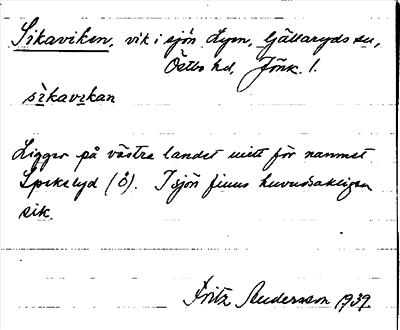 Sikaviken, vik i sjön Lyen, Gällaryds sn,
Östbo hd, Jönk. l.
sikavikan
Ligger på västra landet mitt för namnet
Spekelyd (Ö). I sjön finns huvudsakligen
sik.
Fritz Andersson 1939